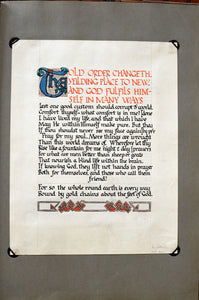 The OLD ORDER CHANGETH,
YIELDING PLACE TO NEW,
AND GOD FULFILS HIM-
SELF IN MANY WAYS
Lest one good custom should corrupt the world.
Comfort thyself: what comfort is in me? I
have lived my life, and that which I have
May He within Himself make pure. But thou
If thou shouldst never see my face again
Pray for my soul. More things are wrought
Than this world dreams of. Wherefore let thy
Rise like a fountain for me night & day:
For what are men better than sheep or goats
That nourish a blind life within the brain,
If knowing God, they lift not hands in prayer
Both for themselves, and those who call them
friend?
For so the whole round earth is every way
Bound by gold chains about the feet of God.